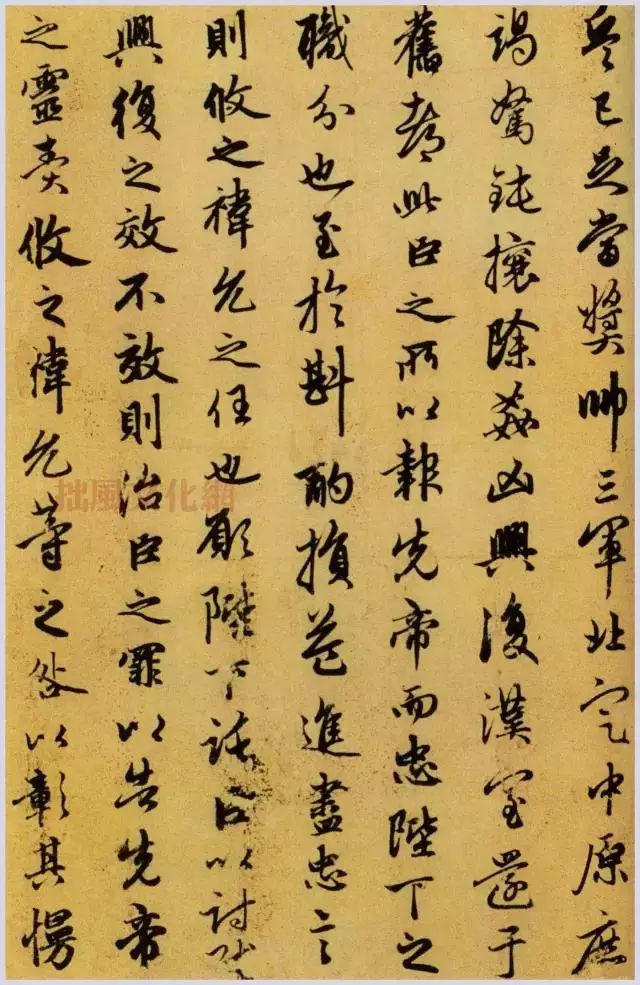 兵已足當奬帥三軍北定中原庶
竭駑鈍攘除姦凶興復漢室還于
舊都此臣之所以報先帝而忠陛下之
職分也至於斟酌損益進盡忠言
則攸之禕允之任也願陛下託臣以討賊
興復之效不效則治臣之罪以告先帝
之靈責攸之禕允等之咎以彰其慢
拙風文化網